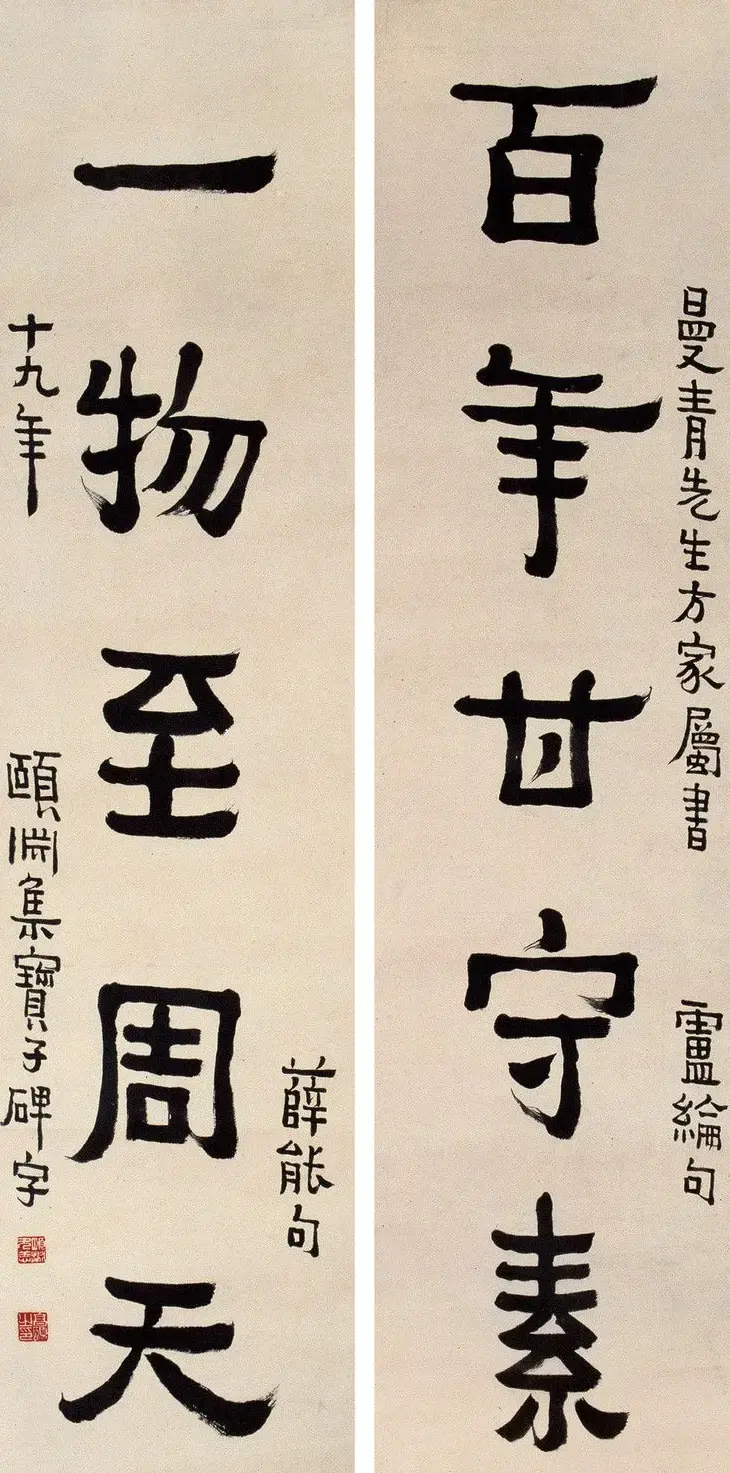 曼青先生方家屬書
盧綸句
百年甘守素
薛能句
一物至周天
十九年
頤淵集寶子碑字